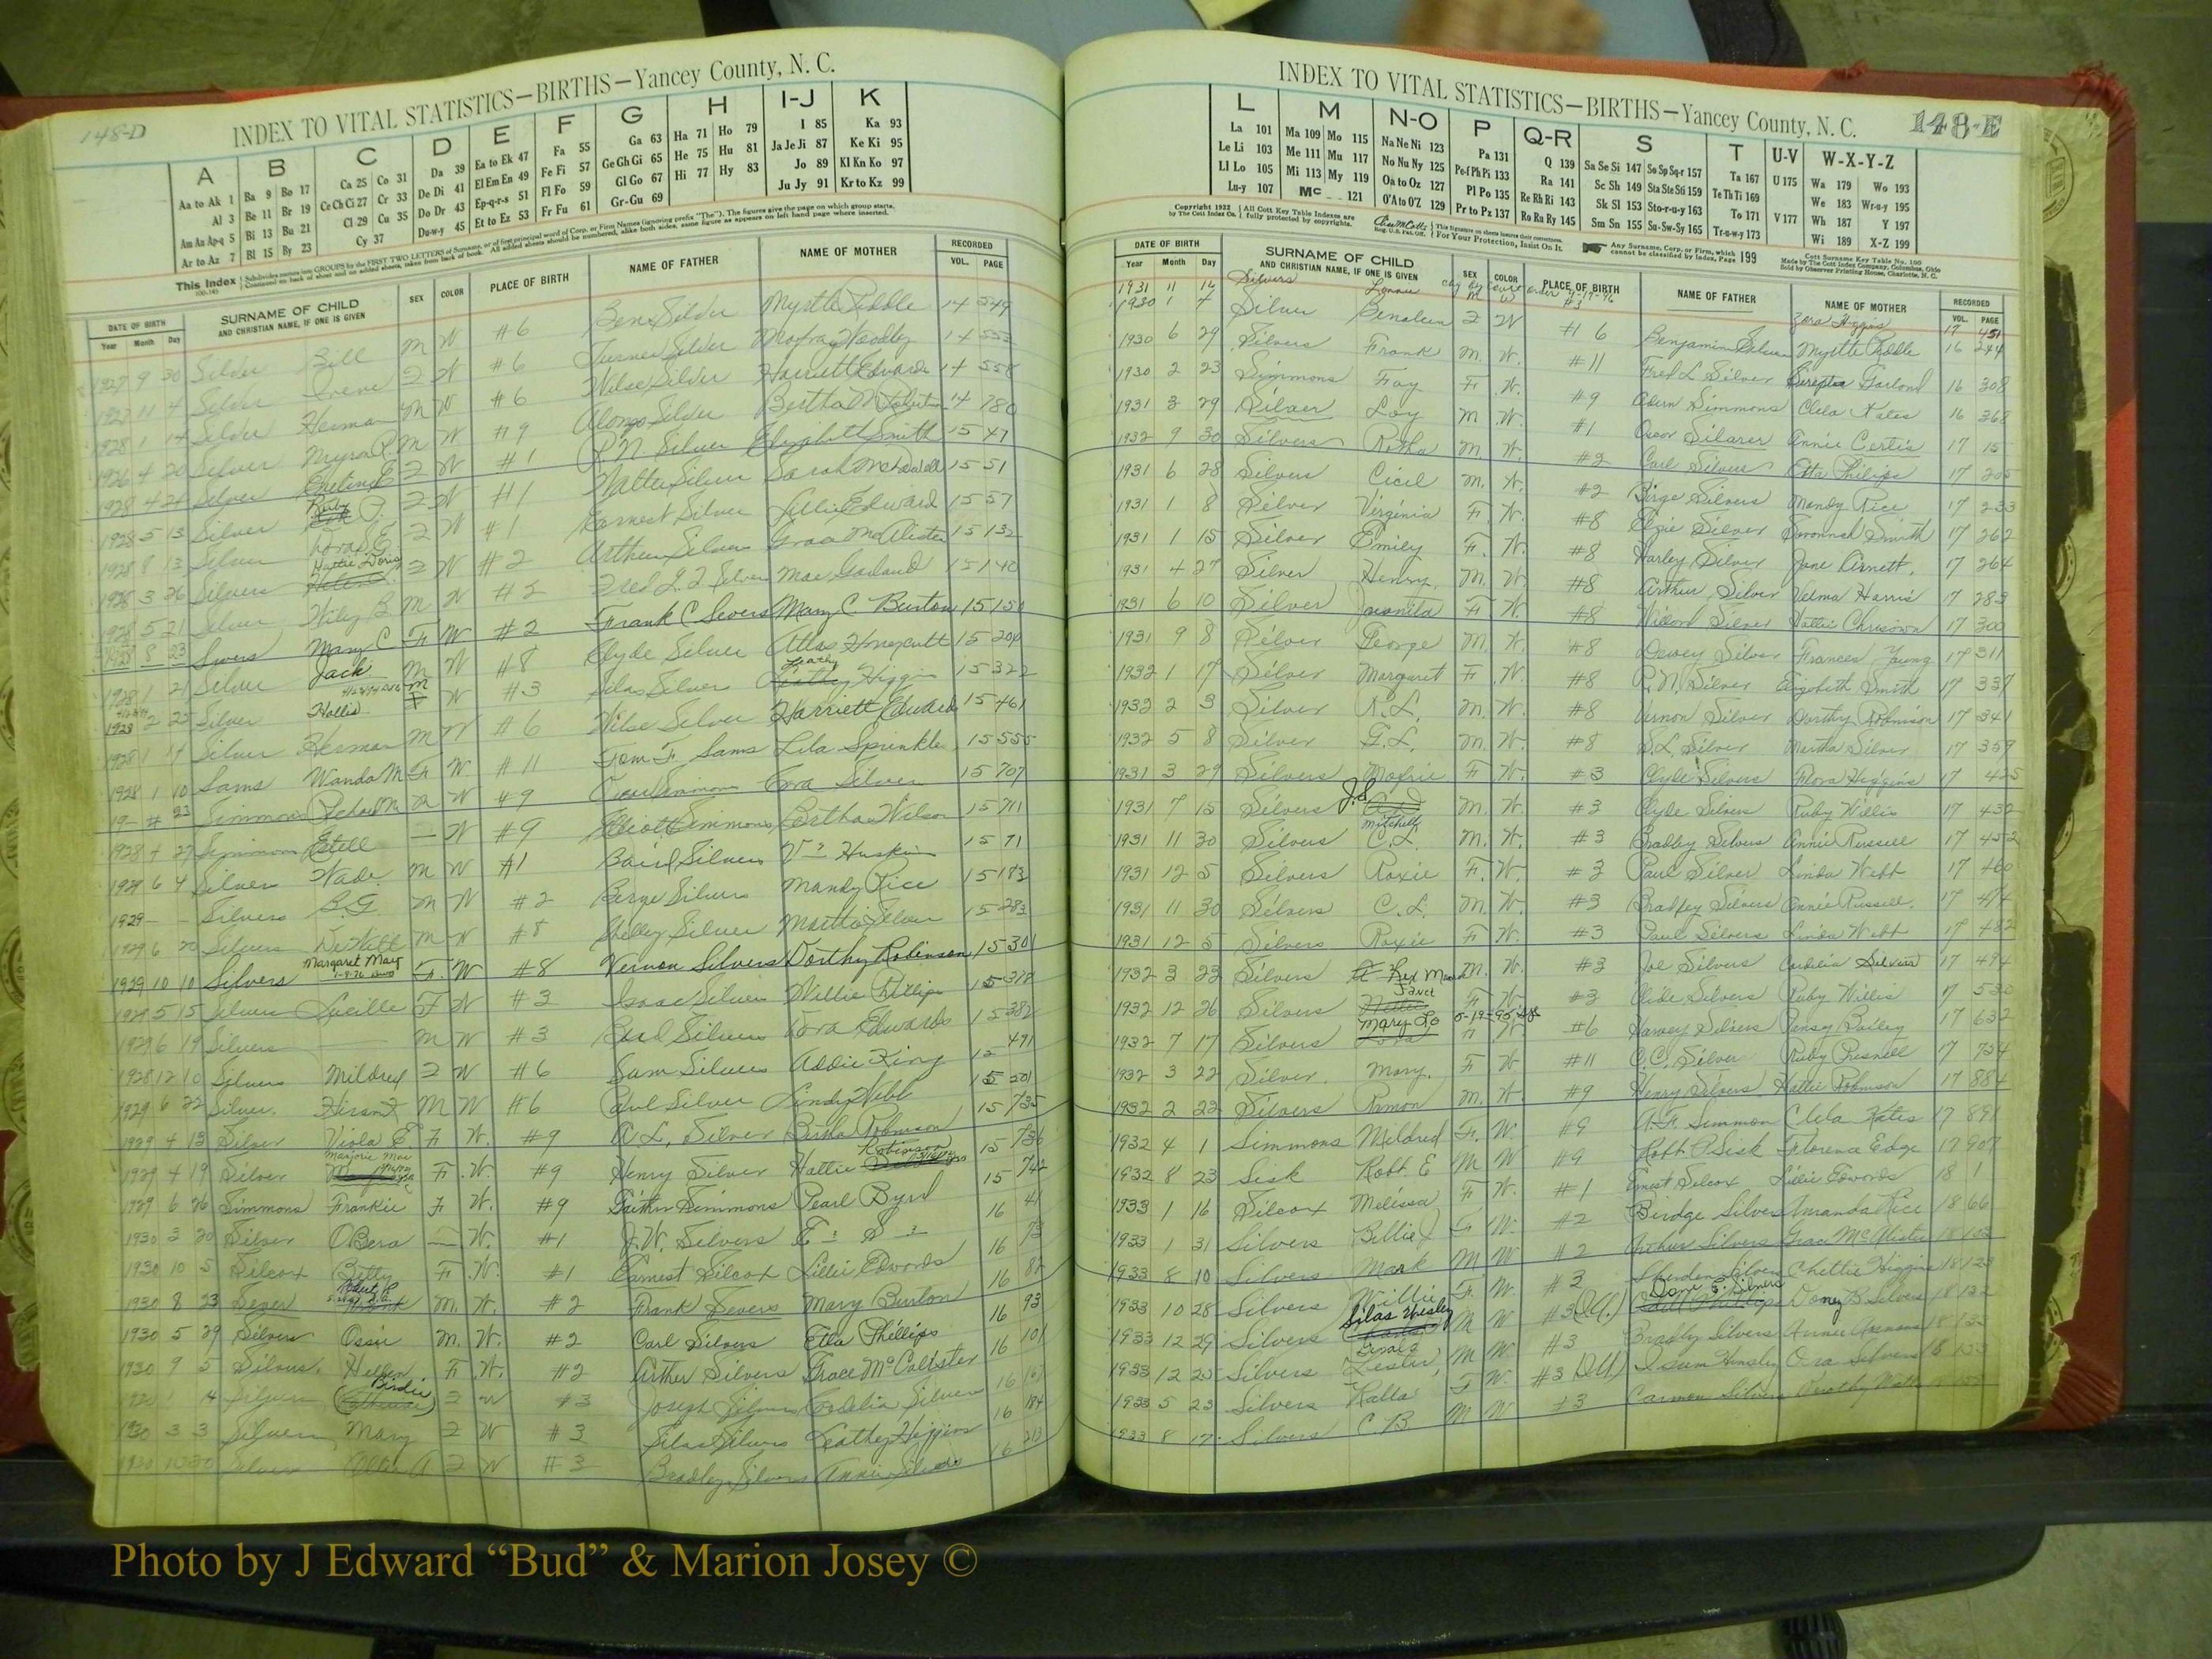 148-D
INDEX TO VITAL STATISTICS—BIRTHS—Yancey County, N. C.
A B C D E F G H I-J K
Aa to Ak 1 Ba 9 Bo 17 Ca 25 Co 31 Da 39 Ea to Ek 47 Fa 55 Ga 63 Ha 71 Ho 79 I 85 Ka 93
Al 3 Be 11 Br 19 Ce Ch Ci 27 Cr 33 De Di 41 El Em En 49 Fe Fi 57 Ge Gh Gi 65 He 75 Hu 81 Ja Je Ji 87 Ke Ki 95
Am An Ap-q 5 Bi 13 Bu 21 Cl 29 Cu 35 Do Dr 43 Ep-q-r-s 51 Fl Fo 59 Gl Go 67 Hi 77 Hy 83 Jo 89 Kl Kn Ko 97
Ar to Az 7 Bl 15 By 23 Cy 37 Du-w-y 45 Et to Ez 53 Fr Fu 61 Gr-Gu 69 Ju Jy 91 Kr to Kz 99
This Index
DATE OF BIRTH SURNAME OF CHILD SEX COLOR PLACE OF BIRTH NAME OF FATHER NAME OF MOTHER RECORDED
Year Month Day AND CHRISTIAN NAME, IF ONE IS GIVEN VOL. PAGE
1927 9 30 Silver Bill M W #6 Ben Silver Myrtle Riddle 14 549
1927 11 4 Silver Irene F W #6 Turner Silver 14 553
1928 1 14 Silver Herman M W #6 Wilse Silver Harriett Edwards 14 558
1926 4 20 Silver Myron R M W #9 Alonzo Silver Bertha M 14 780
1928 4 24 Silver F W #1 R N Silver Elizabeth Smith 15 47
1928 5 13 Silver Ruby F W #1 Walter Silver Sarah McDowell 15 51
1928 8 13 Silver Dora E F W #1 Earnest Silver Lillie Edward 15 57
1928 3 26 Silvers Hattie Doris F W #2 Arthur Silvers Grace McAlister 15 132
1928 5 21 Silver Wiley B M W #2 Fred Silver Mae Garland 15 140
1928 8 23 Sivers Mary C F W #2 Frank C Severs Mary C. Burton 15 151
1928 1 21 Silver Jack M W #8 Clyde Silver Atlas Honeycutt 15 204
1928 2 25 Silver Hollis M W #3 Silas Silvers Leathy Higgins 15 322
1928 1 14 Silver Herman M W #6 Wilse Silver Harriett Edwards 15 461
1928 1 10 Sams Wanda M F W. #11 Tom F Sams Lila Sprinkle 15 555
19— 23 Simmons W #9 Silver 15 707
1928 4 27 Simmons Estell — W #9 Eliott Simmons Bertha Wilson 15 711
1929 6 4 Silver Wade M W #1 Baird Silvers Huskins 15 71
1929 — — Silvers B.G M W #2 Berge Silvers Mandy Rice 15 183
1929 6 20 Silvers DeWill M W #8 Shelley Silver Martha Silver 15 283
1929 10 10 Silvers Margaret May F. W #8 Vernon Silvers Dorthy Robinson 15 301
1929 5 15 Silvers Lucille F W #3 Isaac Silvers Willie Phillips 15 378
1929 6 19 Silvers — M W #3 Silvers Dora Edwards 15 382
1928 12 10 Silvers Mildred F W #6 Sam Silvers Addie King 15 491
1929 6 22 Silver M W #6 Silver Webb 15 501
1929 4 13 Silver Viola E F W. #9 A L. Silver Robinson 15 735
1929 4 19 Silver Marjorie Mae F W. #9 Henry Silver Hattie Robinson 15 736
1929 6 26 Simmons Frankie F W. #9 Simmons Pearl Byrd 15 742
1930 3 20 Silver OBera — W. #1 J.W. Silvers E S 16 41
1930 10 5 Silcox Betty F W. #1 Earnest Silcox Lillie Edwords 16 73
1930 8 23 Sever Robert R M. W. #2 Frank Severs Mary Burton 16 88
1930 5 29 Silvers Ossie M. W. #2 Carl Silvers Etta Phillips 16 93
1930 9 5 Silvers. Hellen F W. #2 Arther Silvers Grace McCalister 16 101
1930 1 4 Silvers Birdie F W #3 Joseph Silvers Cordelia Silver 16 167
1930 3 3 Silvers Mary F W #3 Silas Silvers Leathy Higgins 16 184
1930 10 20 Silvers F W #3 Bradley Silvers Annie 16 213
INDEX TO VITAL STATISTICS—BIRTHS—Yancey County, N. C. 148-E
L M N-O P Q-R S T U-V W-X-Y-Z
La 101 Ma 109 Mo 115 Na Ne Ni 123 Pa 131 Q 139 Sa Se Si 147 So Sp Sq-r 157 Ta 167 U 175 Wa 179 Wo 193
Le Li 103 Me 111 Mu 117 No Nu Ny 125 Pe-f Ph Pi 133 Ra 141 Sc Sh 149 Sta Ste Sti 159 Te Th Ti 169 We 183 Wr-u-y 195
Ll Lo 105 Mi 113 My 119 Oa to Oz 127 Pl Po 135 Re Rh Ri 143 Sk Sl 153 Sto-r-u-y 163 To 171 V 177 Wh 187 Y 197
Lu-y 107 Mc 121 O'A to O'Z 129 Pr to Pz 137 Ro Ru Ry 145 Sm Sn 155 Su-Sw-Sy 165 Tr-u-w-y 173 Wi 189 X-Z 199
Copyright 1932 by The Cott Index Co. All Cott Key Table Indexes are fully protected by copyrights.
For Your Protection, Insist On It.
Any Surname, Corp. or Firm, which cannot be classified by Index, Page 199
Cott Surname Key Table No. 100
Made by The Cott Index Company, Columbus, Ohio
Sold by Observer Printing House, Charlotte, N. C.
DATE OF BIRTH SURNAME OF CHILD SEX COLOR PLACE OF BIRTH NAME OF FATHER NAME OF MOTHER RECORDED
Year Month Day AND CHRISTIAN NAME, IF ONE IS GIVEN VOL. PAGE
1931 11 14 Silvers Lonnie M W #3 Zora Higgins 17 451
1930 1 7 Silver F W #6 Benjamin Silver Myrtle Riddle 16 244
1930 6 29 Silvers Frank M. W. #11 Fred L Silver Garland 16 308
1930 2 23 Simmons Fay F. W. #9 Simmons Clela 16 368
1931 3 29 Silver Loy M W. #1 Oscar Annie Certis 17 15
1932 9 30 Silvers Rotha M W. #2 Carl Silvers Etta Philips 17 205
1931 6 28 Silvers Cicil M. W. #2 Birge Silvers Mandy Rice 17 233
1931 1 8 Silver Virginia F. W. #8 Elzie Silver Savannah Smith 17 262
1931 1 15 Silver Emily F. W. #8 Harley Silver Jane Arnett. 17 264
1931 4 27 Silver Henry M. W. #8 Arthur Silver Velma Harris 17 283
1931 6 10 Silver Juanita F W. #8 Silver Hattie 17 300
1931 9 8 Silver George M. W. #8 Dewey Silver Frances Young 17 311
1932 1 17 Silver Margaret F W. #8 R.N. Silver Elizabeth Smith 17 337
1932 2 3 Silver R.L. M. W. #8 Vernon Silver Dorthy Robinson 17 341
1932 5 8 Silver G.L. M. W. #8 S.L. Silver Martha Silver 17 359
1931 3 29 Silvers Maxie F W. #3 Clyde Silvers Flora Higgins 17 425
1931 7 15 Silvers J.D. M. W. #3 Clyde Silvers Ruby Willis 17 432
1931 11 30 Silvers Mitchell C.L. M. W. #3 Bradley Silvers Annie Russell 17 452
1931 12 5 Silvers Roxie F. W. #3 Paul Silver Linda Webb 17 460
1931 11 30 Silvers C.L. M. W. #3 Bradley Silvers Annie Russell. 17 474
1931 12 5 Silvers Roxie F W. #3 Paul Silvers Linda Webb 17 482
1932 3 23 Silvers Rex M. W. #3 Joe Silvers Cordelia Silvers 17 494
1932 12 26 Silvers Janet F W. #3 Clide Silvers Ruby Willis 17 530
1932 7 17 Silvers Mary Lo F W. #6 Harvey Silvers Pansy Bailey 17 632
1932 3 22 Silver Mary. F W #11 C.C. Silver Ruby Presnell 17 754
1932 2 22 Silvers Ramon M. W. #9 Henry Silvers Hattie Robinson 17 884
1932 4 1 Simmons Mildred F. W. #9 A F Simmon Clela 17 891
1932 8 23 Sisk Robt. E M W #9 Robt. P Sisk Florence Edge 17 907
1933 1 16 Silcox Melissa F W. #1 Ernest Silcox Lillie Edwords 18 1
1933 1 31 Silvers Billie F W. #2 Birdge Silvers Amanda Rice 18 66
1933 8 10 Silvers Mark M W #2 Arthur Silvers Grace McAlister 18 102
1933 10 28 Silvers Willie F. W. #3 Silver Chettie Higgins 18 123
1933 12 29 Silvers Silas Wesley M W #3 (Ill.) Silvers Doney B. Silvers 18 132
1933 12 25 Silvers Lester M W #3 Bradly Silvers Annie 18
1933 5 23 Silvers F W. #3 (Ill) Isum Hensley Ora Silvers 18
1933 8 17 Silvers C B M W #3 Carmon Silvers Dorothy
Photo by J Edward “Bud” & Marion Josey ©